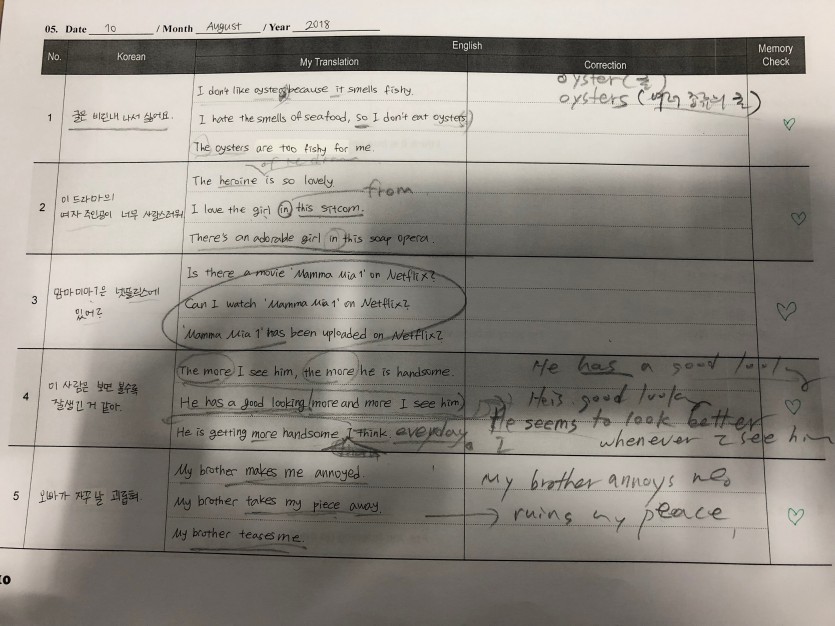 05. Date 10 / Month August / Year 2018
No. Korean English Memory Check
My Translation Correction
1 굴은 비린내 나서 싫어요.
I don't like oysters because it smells fishy.
I hate the smells of seafood, so I don't eat oysters
The oysters are too fishy for me.
oyster (굴)
oysters (여러 종류의 굴)
2 이 드라마의
여자 주인공이 너무 사랑스러워
The heroine is so lovely
of the drama
I love the girl in this sitcom.
from
There's an adorable girl in this soap opera.
3 맘마미아1은 넷플릭스에
있어?
Is there a movie 'Mamma Mia 1' on Netflix?
Can I watch 'Mamma Mia 1' on Netflix?
'Mamma Mia 1' has been uploaded on Netflix?
4 이 사람은 보면 볼수록
잘생긴 거 같아.
The more I see him, the more he is handsome.
He has a good looking (more and more I see him)
He is getting more handsome I think. everyday.
He has a good look
He is good look
He seems to look better
whenever I see him
5 오빠가 자꾸 날 괴롭혀.
My brother makes me annoyed.
My brother takes my piece away.
My brother teases me.
My brother annoys me.
ruins my peace